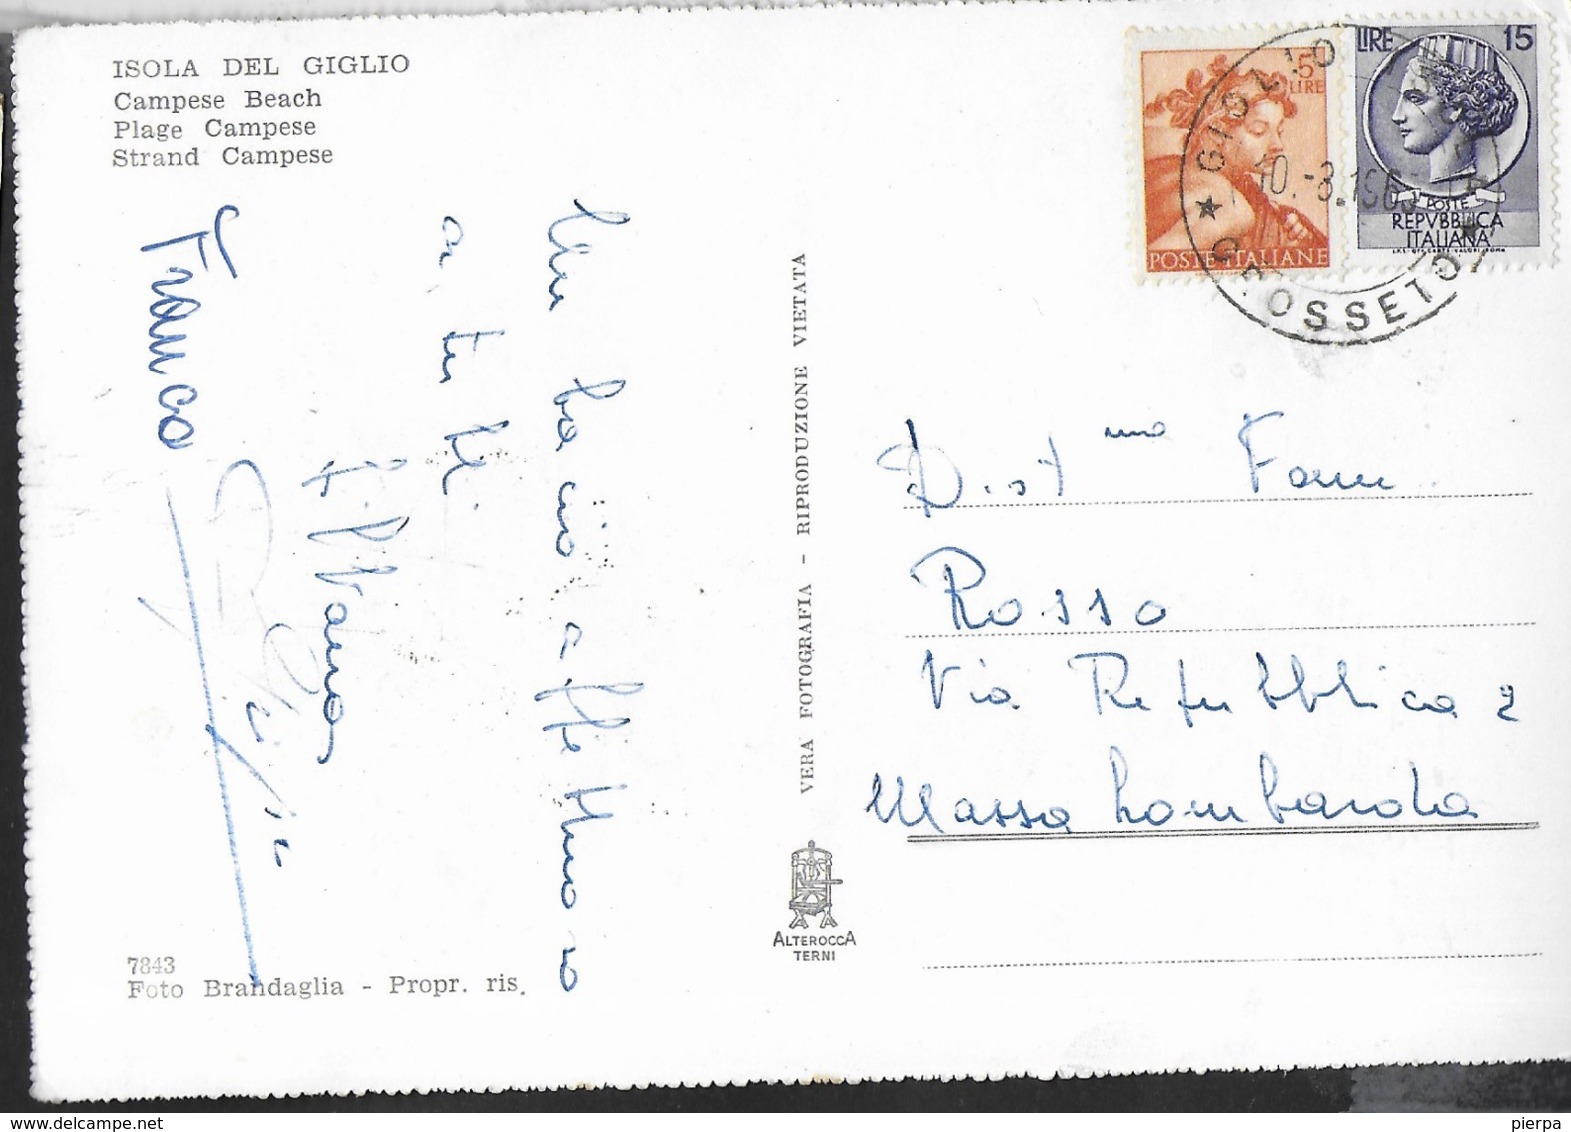 ISOLA DEL GIGLIO
Campese Beach
Plage Campese
Strand Campese
5
LIRE
POSTE ITALIANE
LIRE 15
POSTE
REPVBBLICA
ITALIANA
GIGLIO
10.-8.196
GROSSETO
Un bacio affettuoso
a tutti.
Franco
VERA FOTOGRAFIA - RIPRODUZIONE VIETATA
Dist ma Fam
Rosso
Via Repubblica 2
Massa Lombarda
ALTEROCCA
TERNI
7843
Foto Brandaglia - Propr. ris.
www.delcampe.net
pierpa